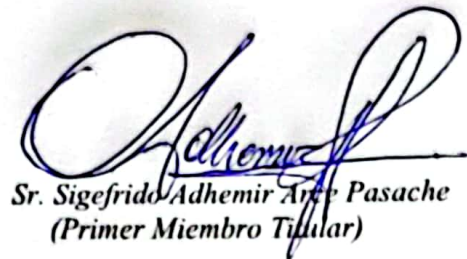 Adhemir
Sr. Sigefrido Adhemir Arce Pasache
(Primer Miembro Titular)